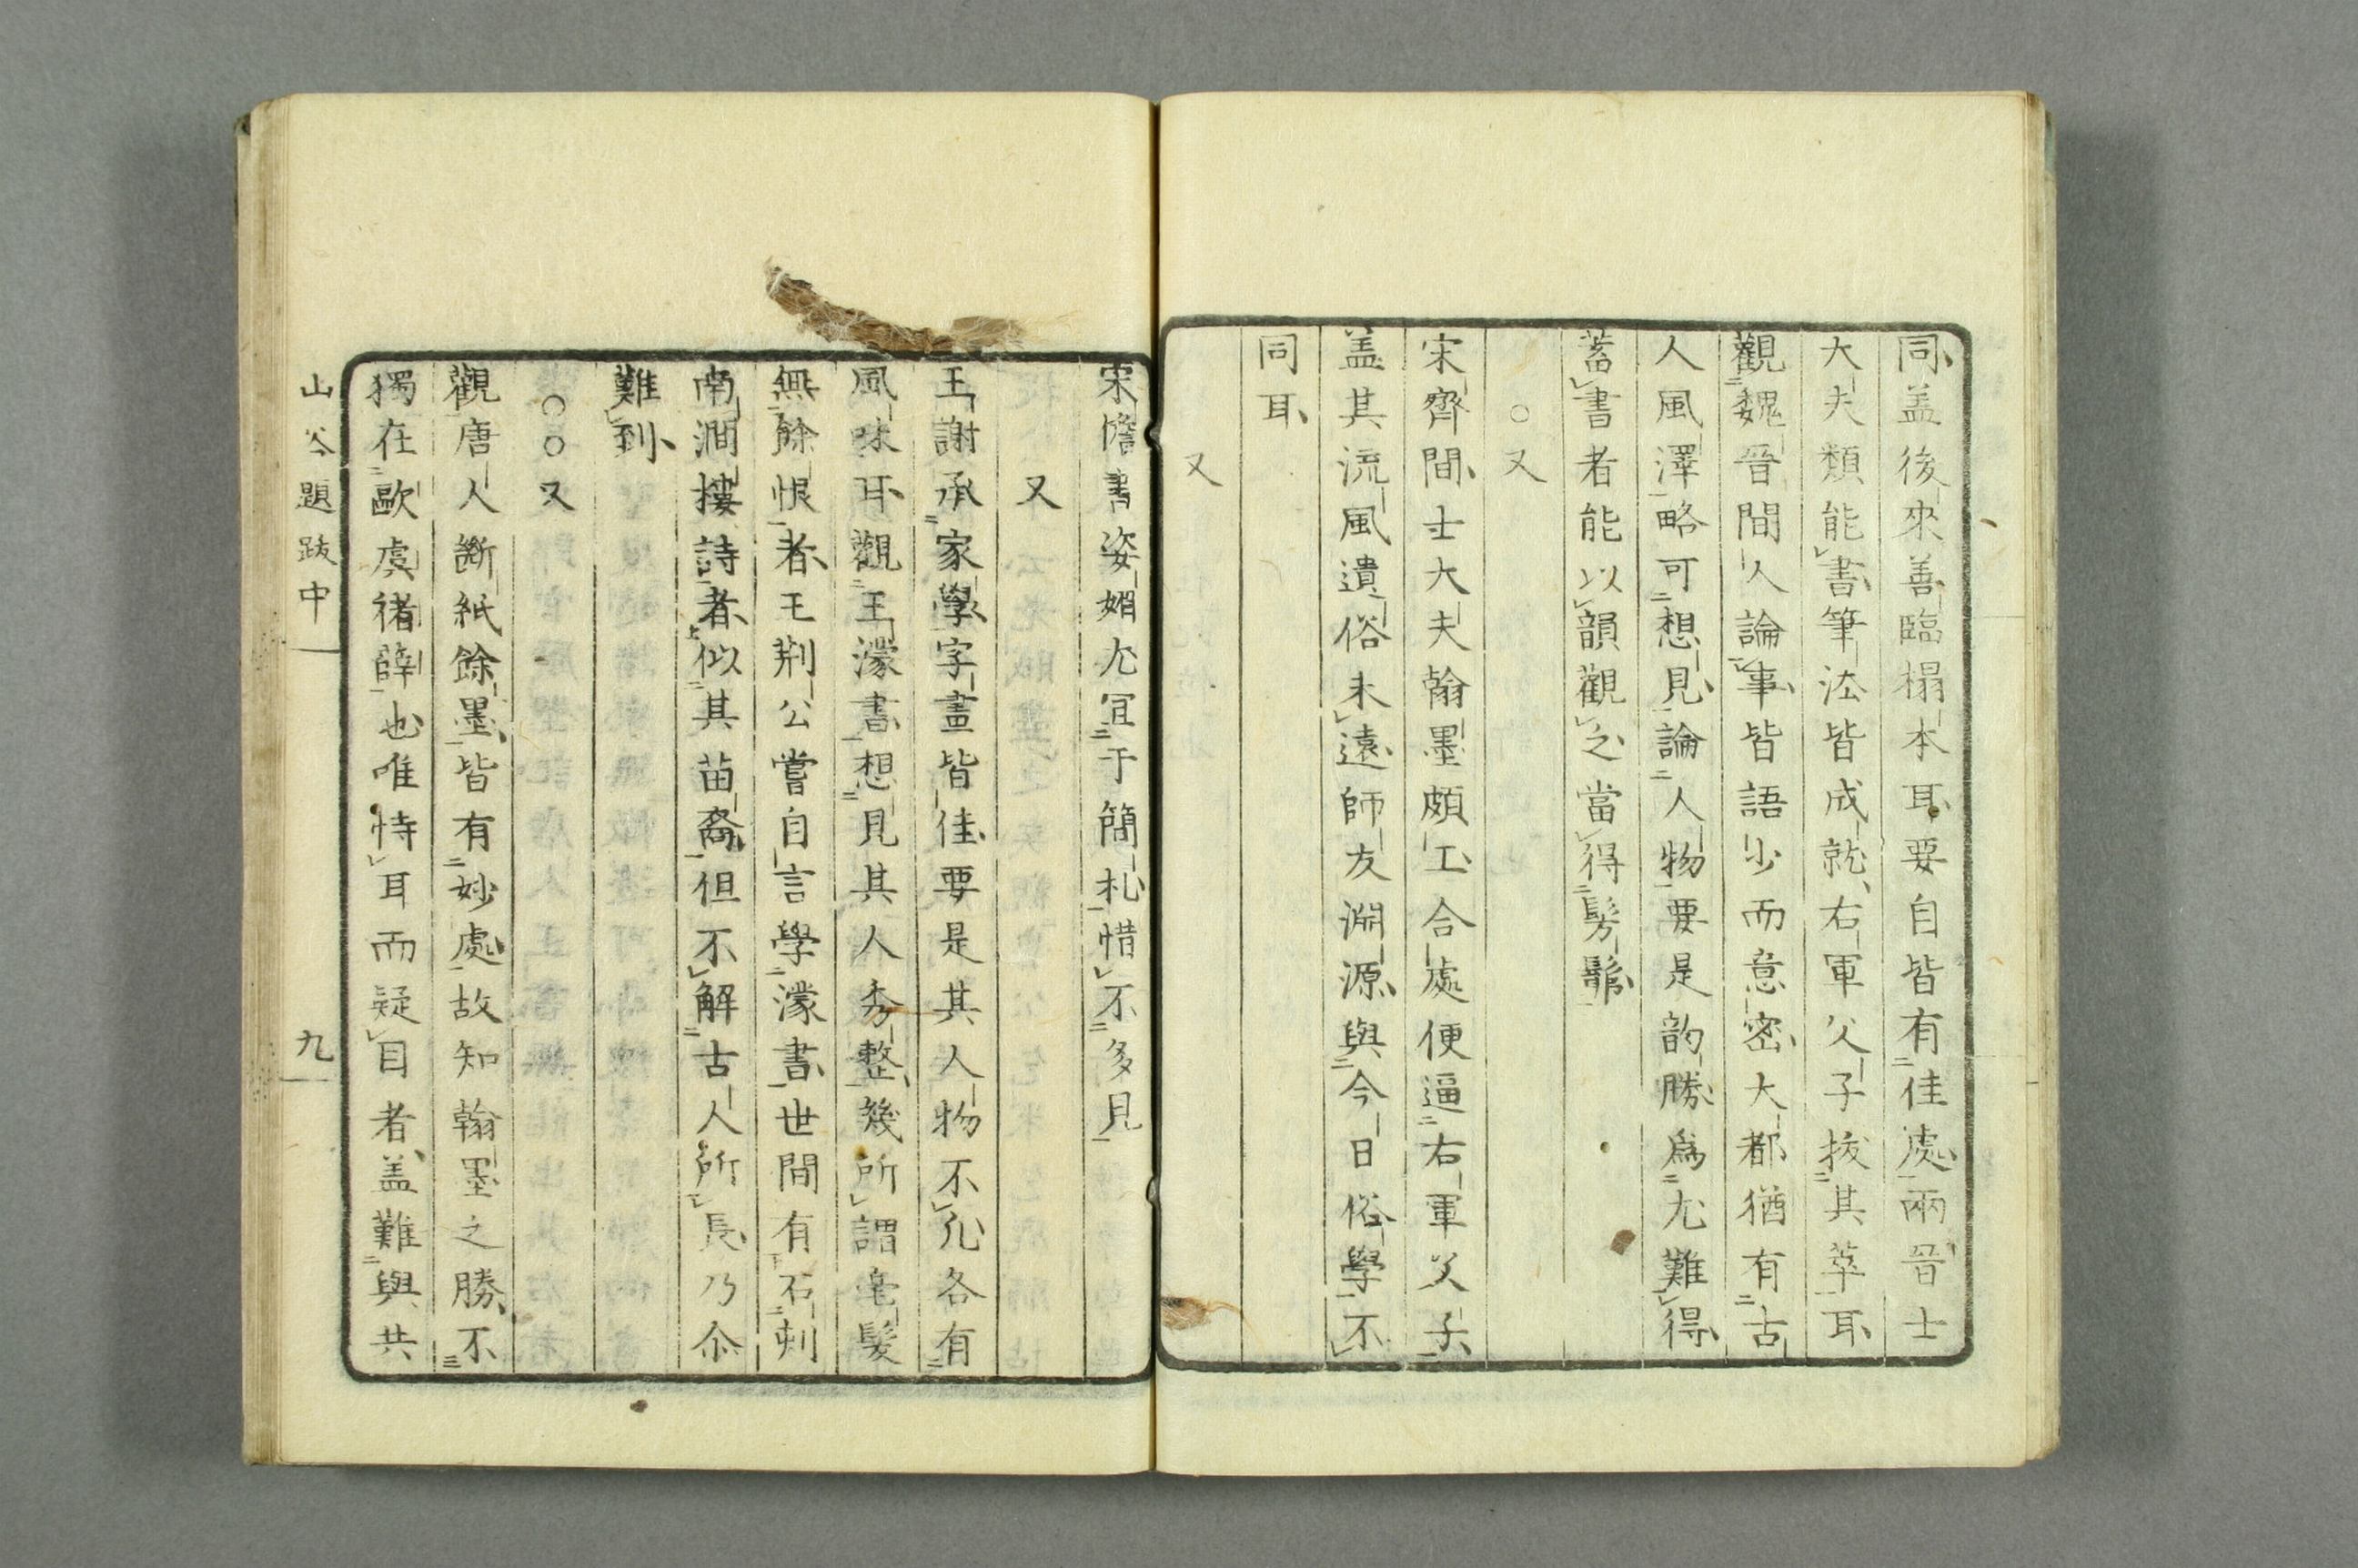 同蓋後來善臨榻本耳要自皆有佳處兩晉士
大夫類能書筆法皆成就右軍父子拔其萃耳
觀魏晉間人論事皆語少而意密大都猶有古
人風澤略可想見論人物要是韵勝爲尤難得
蓄書者能以韻觀之當得髣髴
○又
宋齊間士大夫翰墨頗工合處便逼右軍父子
蓋其流風遺俗未遠師友淵源與今日俗學不
同耳
又
宋儋書姿媚尤宜于簡札惜不多見
又
王謝承家學字畫皆佳要是其人物不凡各有
風味耳觀王濛書想見其人秀整幾所謂毫髮
無餘恨者王荆公嘗自言學濛書世間有石刻
南澗樓詩者似其苗裔但不解古人所長乃尒
難到
○○又
觀唐人斷紙餘墨皆有妙處故知翰墨之勝不
獨在歐虞禇薛也唯恃耳而疑目者蓋難與共
山谷題跋中
九